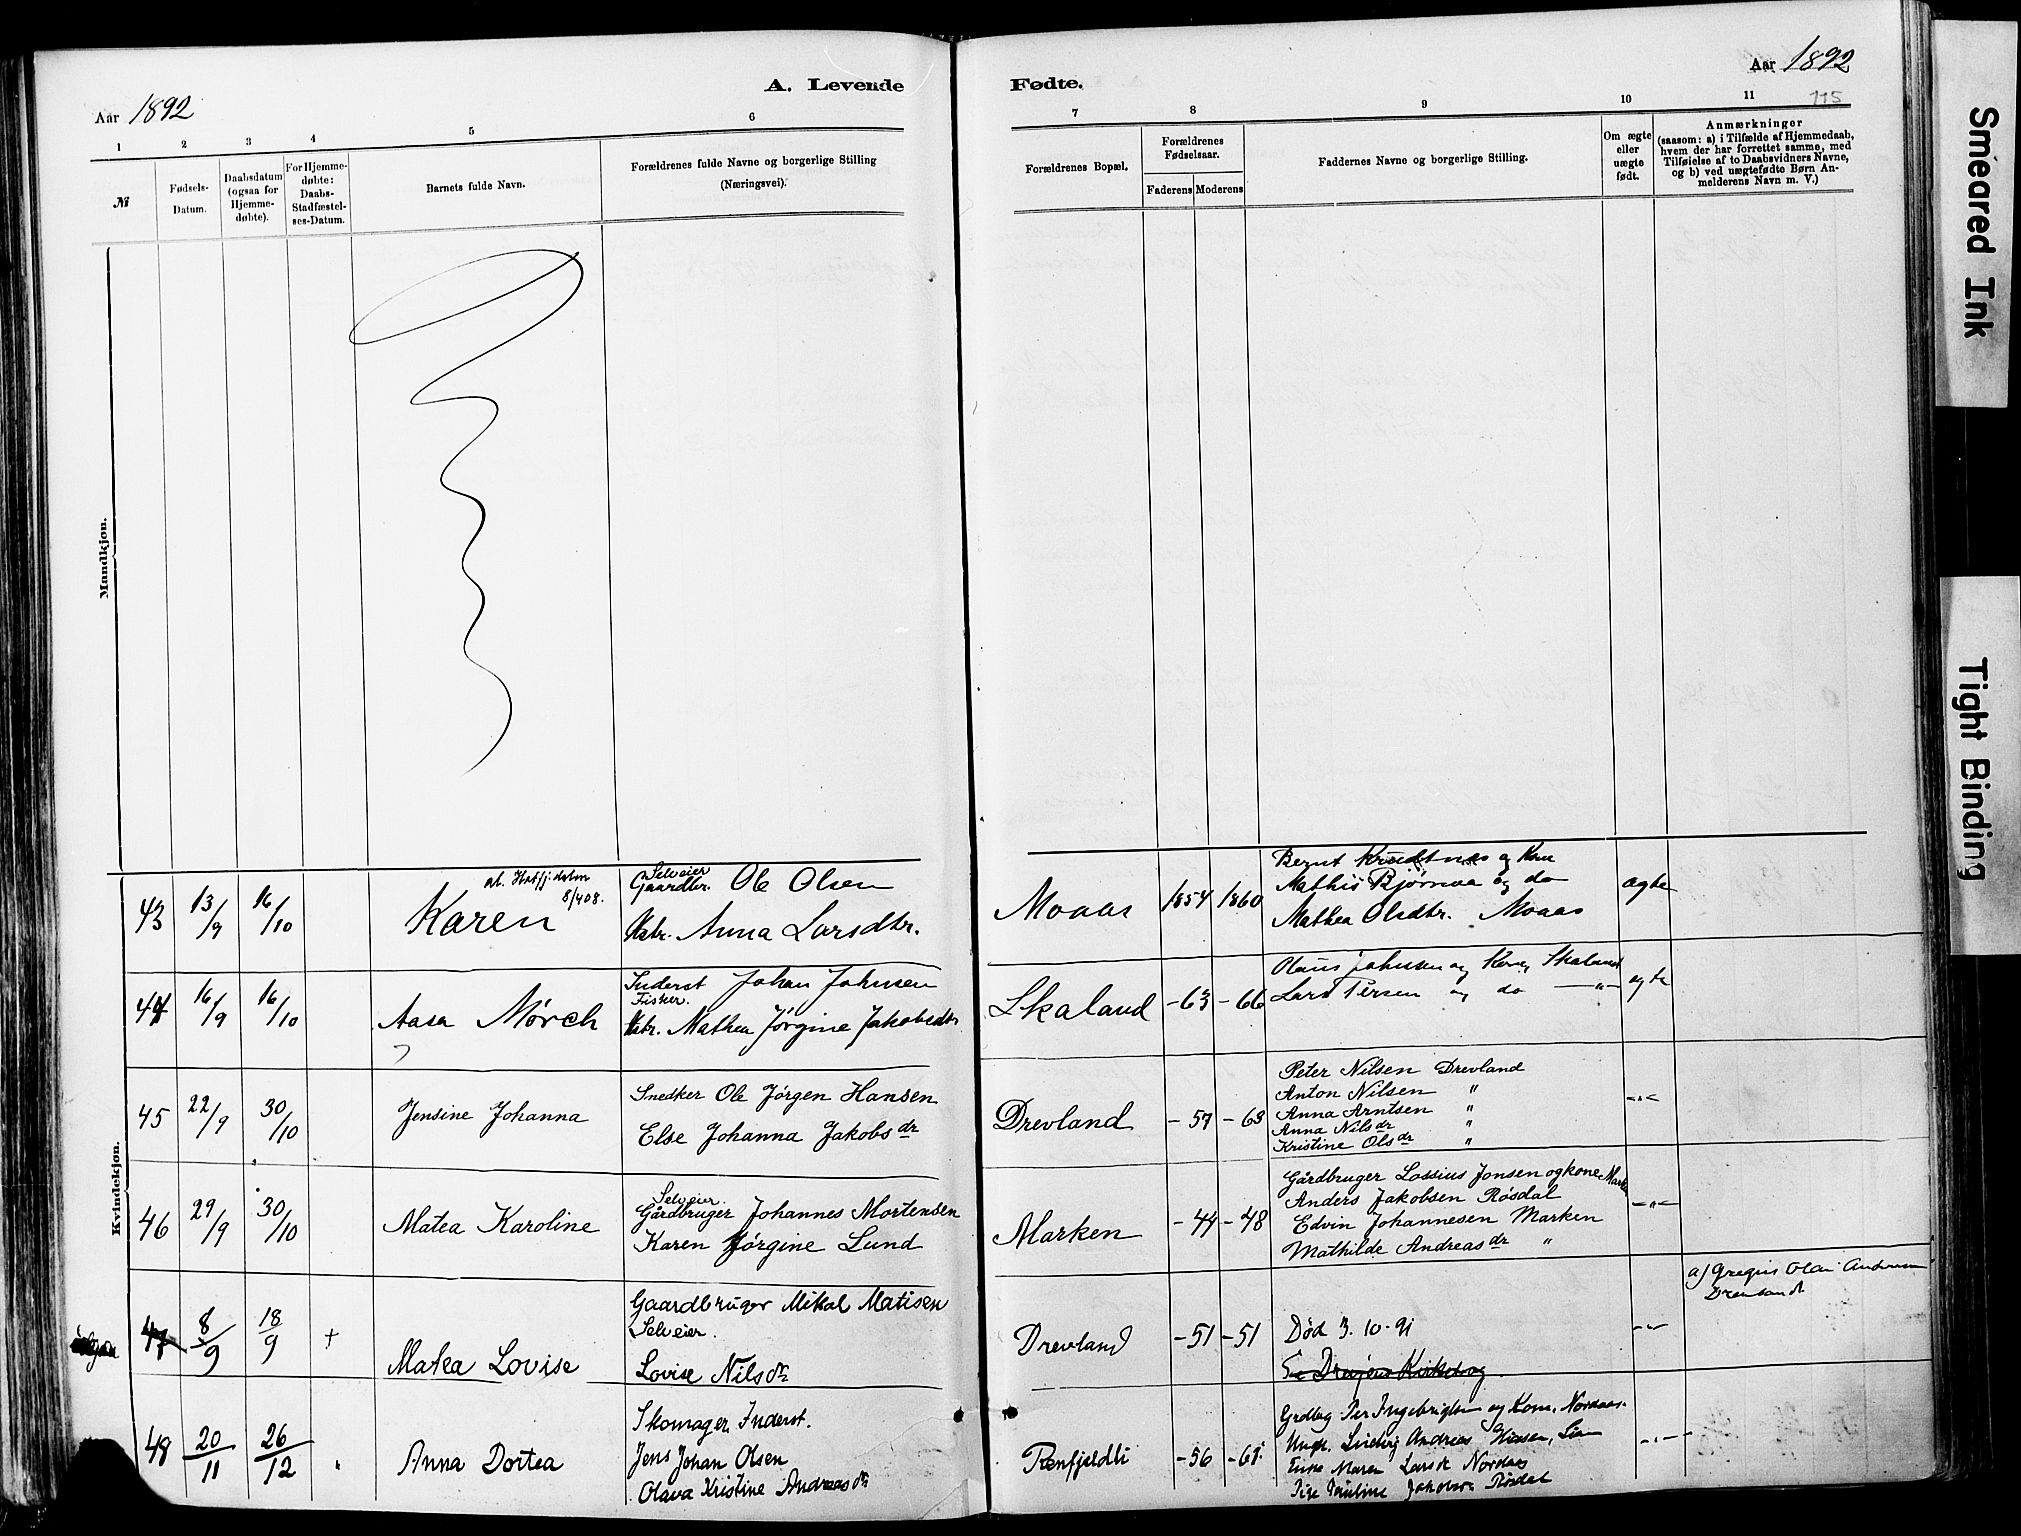 Aar 1892
A. Levende
Fødte.
Aar 1892
115
1 2 3 4 5 6
7 8 9 10 11
№
Fødsels-
Datum.
Daabsdatum
(ogsaa for
Hjemme-
døbte).
For Hjemme-
døbte:
Daabs-
Stadfæstel-
ses-Datum.
Barnets fulde Navn.
Forældrenes fulde Navne og borgerlige Stilling
(Næringsvei).
Forældrenes Bopæl.
Forældrenes
Fødselsaar.
Faderens Moderens
Faddernes Navne og borgerlige Stilling.
Om ægte
eller
uægte
født.
Anmærkninger
(saasom: a) i Tilfælde af Hjemmedaab,
hvem der har forrettet samme, med
Tilføielse af to Daabsvidners Navne,
og b) ved uægtefødte Børn An-
melderens Navn m. V.)
Mandkjøn.
Kvindekjøn.
43 13/9 16/10
8/408.
Karen
Selveier
Gaardbr. Ole Olsen
Anna Larsdtr.
Moaas 1854 1860
Bernt Krudtnes og Kone
Mathis Bjørnaa og do
Mathea Olsdtr. Moaas
ægte
44 16/9 16/10
Aasa Mørch
Inderst Johan Johnsen
Fisker.
Mathea Jørgine Jakobsdtr
Skaland -63 -66
Olaus Johnsen og Kone, Skaland
Lars Persen og do -"-
ægte
45 22/9 30/10
Jensine Johanna
Snedker Ole Jørgen Hansen
Else Johanna Jakobsdr
Drevland -57 -63
Peter Nilsen Drevland
Anton Nilsen "
Anna Arntsen "
Anna Nilsdr "
Kristine Olsdr "
-"-
46 29/9 30/10
Matea Karoline
Selveier.
Gårdbruger Johannes Mortensen
Karen Jørgine Lund
Marken -44 -48
Gårdbruger Lossius Jonsen og kone Marken
Anders Jakobsen Røsdal
Edvin Johannesen Marken
Mathilde Andreasdr "
-"-
47 8/9 18/9 +
Matea Lovise
Gaardbruger Mikal Matisen
Selveier.
Lovise Nilsdr
Drevland -51 -51
Død 3.10.91
Se Drevjens Kirkebog
-"-
a) Gregus Olai Andersen
48 20/11 26/12 "
Anna Dortea
Skomager, Inderst.
Jens Johan Olsen
Olava Kristine Andreasdr
Renfjeldli -56 -61
Grdbrg Per Ingebrigtsen og Kone, Nordaas.
Maren Larsdr Nordaas
Pige Pauline Jakobsen Røsdal
-"-
Smeared Ink
Tight Binding